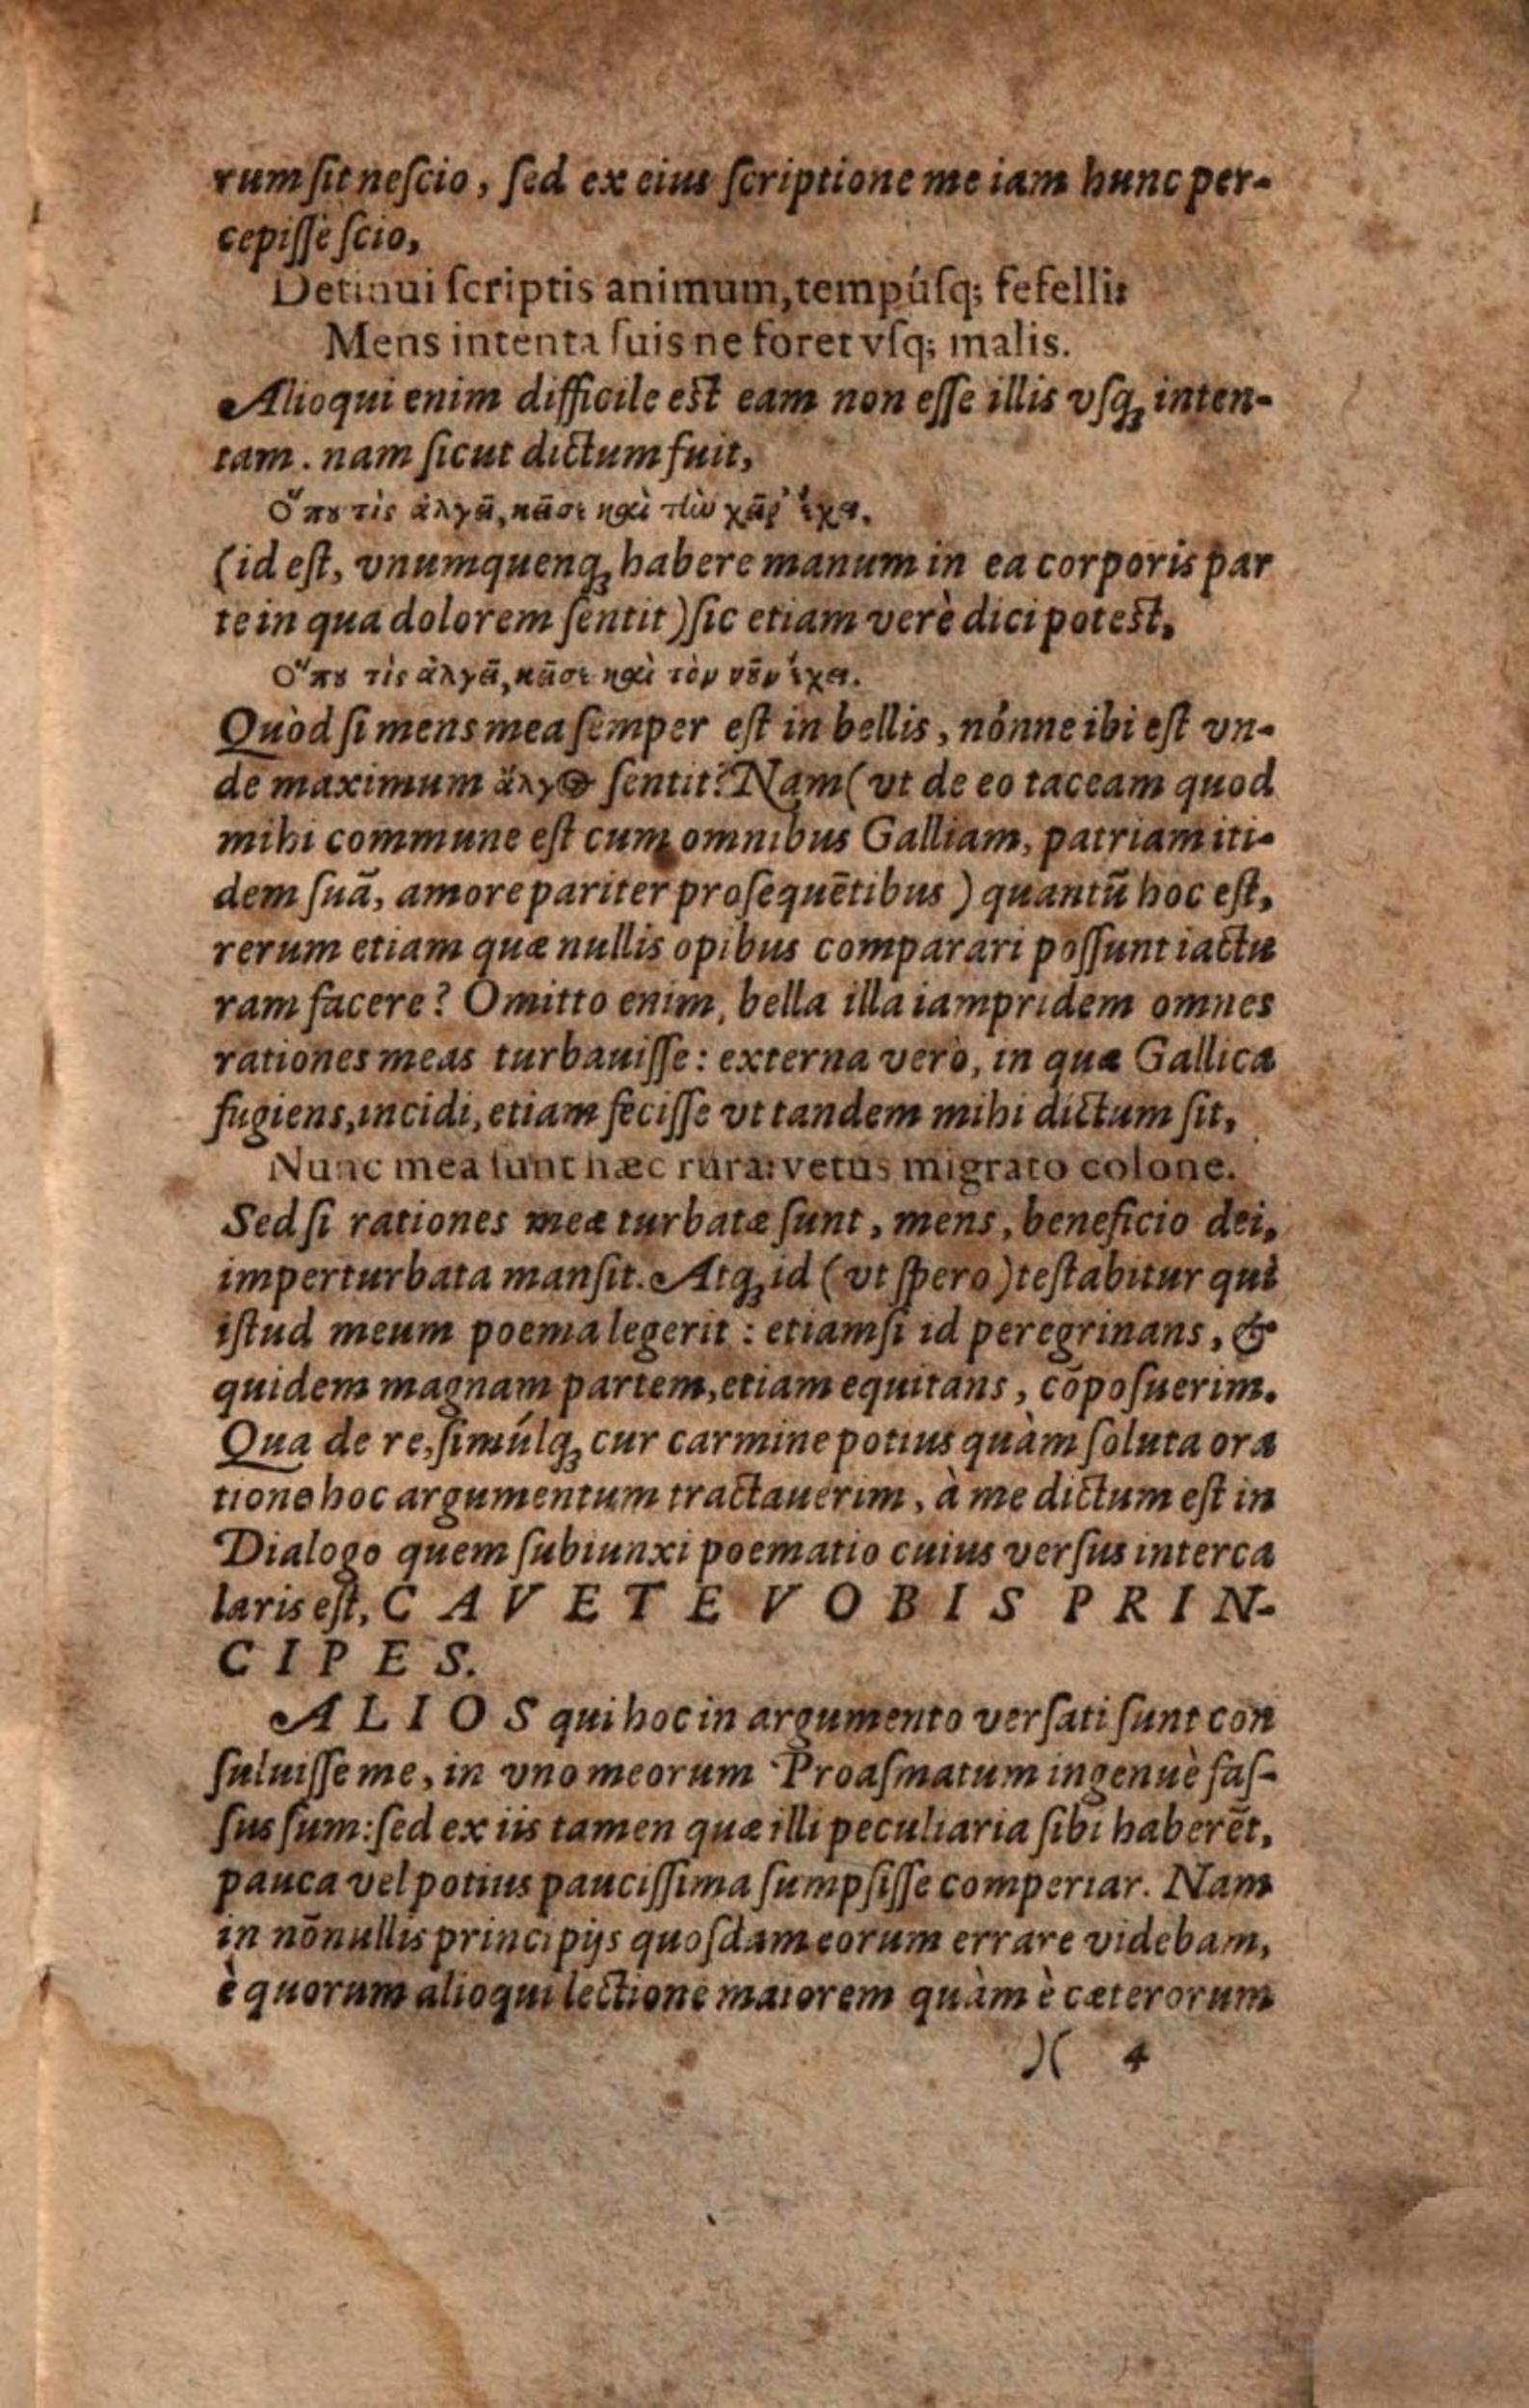 rum ſit neſcio, ſed ex eius ſcriptione me iam hunc per-
cepiſſe ſcio,
Detinui ſcriptis animum, tempúſq; fefelli:
Mens intenta ſuis ne foret vſq; malis.
Alioqui enim difficile est eam non eſſe illis vſq; inten-
tam. nam ſicut dictum fuit,
Ὅπȣ τὶς ἀλγεῖ, κεῖσε καὶ τὴν χεῖρ' ἔχει.
(id eſt, vnumquenq; habere manum in ea corporis par
te in qua dolorem ſentit) ſic etiam verè dici potest,
Ὅπȣ τὶς ἀλγεῖ, κεῖσε καὶ τὸν νȣ͂ν ἔχει.
Quòd ſi mens mea ſemper eſt in bellis, nónne ibi eſt vn-
de maximum ἄλγος ſentit? Nam (vt de eo taceam quod
mihi commune eſt cum omnibus Galliam, patriam iti-
dem ſuã, amore pariter proſequẽtibus) quantũ hoc eſt,
rerum etiam quæ nullis opibus comparari poſſunt iactu
ram facere? Omitto enim, bella illa iampridem omnes
rationes meas turbauiſſe: externa verò, in quæ Gallica
fugiens, incidi, etiam feciſſe vt tandem mihi dictum ſit,
Nunc mea ſunt hæc rura: vetus migrato colone.
Sed ſi rationes meæ turbatæ ſunt, mens, beneficio dei,
imperturbata manſit. Atq; id (vt ſpero) teſtabitur qui
iſtud meum poema legerit: etiamſi id peregrinans, &
quidem magnam partem, etiam equitans, cõpoſuerim.
Qua de re, ſimúlq; cur carmine potius quàm ſoluta ora
tione hoc argumentum tractauerim, à me dictum eſt in
Dialogo quem ſubiunxi poematio cuius verſus interca
laris eſt, CAVETE VOBIS PRIN-
CIPES.
ALIOS qui hoc in argumento verſati ſunt con
ſuluiſſe me, in vno meorum Proaſmatum ingenuè faſ-
ſus ſum: ſed ex iis tamen quæ illi peculiaria ſibi haberẽt,
pauca vel potius pauciſſima ſumpſiſſe comperiar. Nam
in nõnullis principijs quoſdam eorum errare videbam,
è quorum alioqui lectione maiorem quàm è cæterorum
)( 4